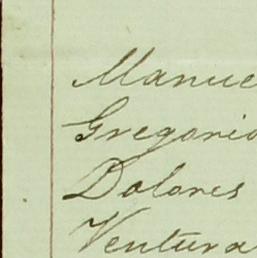 Manue
Gregorio
Dolores
Ventura